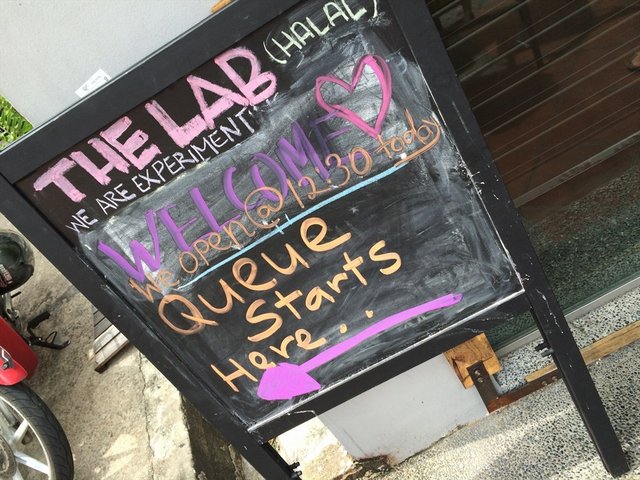 THE LAB (HALAL)
WE ARE EXPERIMENT
WELCOME
We open @ 12:30 today
Queue
Starts
Here...